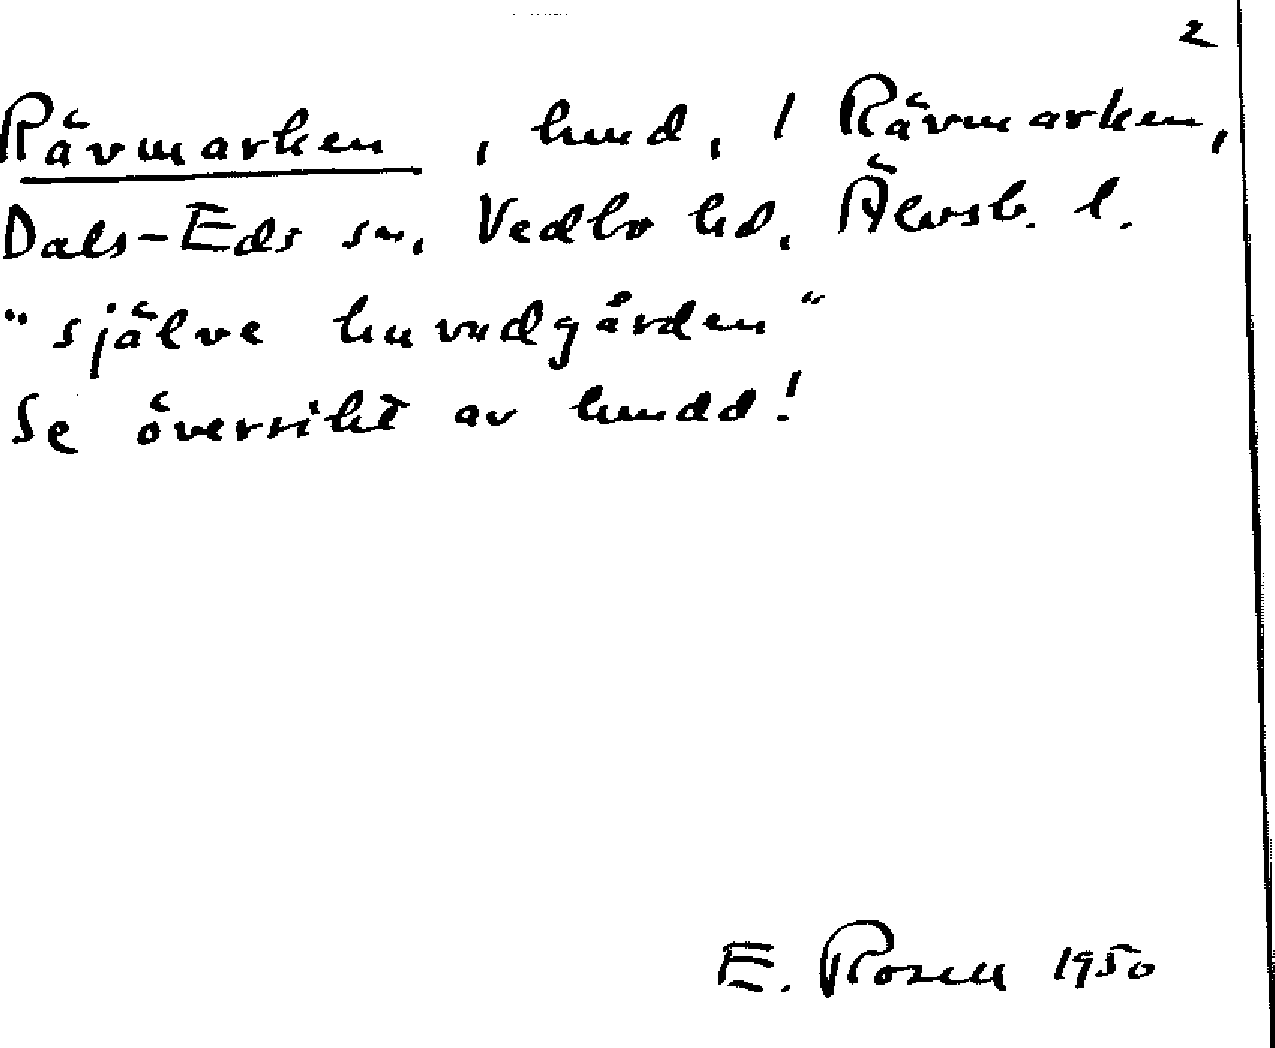 2
Rävmarken, hmd, 1 Rävmarken,
Dals-Eds sn, Vedbo hd, Älvsb. l.
"själve huvudgården"
Se översikt av hmdd!
E. Rosell 1950